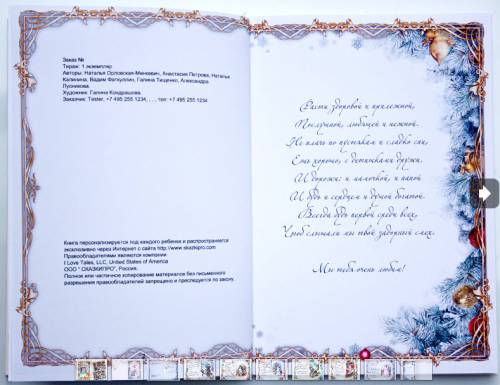 Заказ №
Тираж: 1 экземпляр
Авторы: Наталья Орловская-Минкевич, Анастасия Петрова, Наталья
Калинина, Вадим Фаткуллин, Галина Тищенко, Александра
Пузикова.
Художник: Галина Кондрашова.
Заказчик: Tester, +7 495 255 1234, , , , тел: +7 495 255 1234
Книга персонализируется под каждого ребенка и распространяется
эксклюзивно через Интернет с сайта http://www.skazkipro.com
Правообладателями являются компании
I Love Tales, LLC, United States of America
ООО " СКАЗКИПРО", Россия.
Полное или частичное копирование материалов без письменного
разрешения правообладателей запрещено и преследуется по закону.
Расти здоровой и прилежной,
Послушной, любящей и нежной.
Не плачь по пустякам и сладко спи,
Ешь хорошо, с детишками дружи.
И дорожи: и мамочкой, и папой
И будь и сердцем и душой богатой.
Всегда будь первой среди всех,
Чтоб слышали мы твой задорный смех.
Мы тебя очень любим!